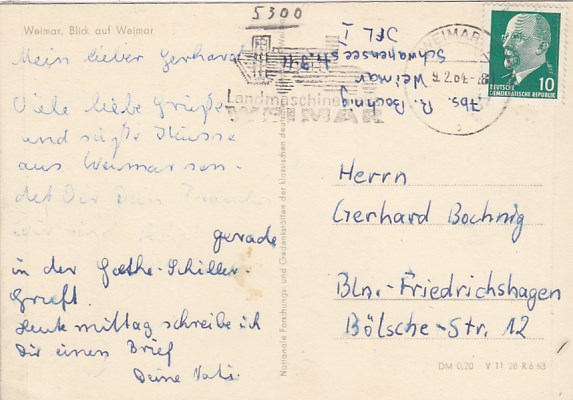 5300
Weimar, Blick auf Weimar
Mein lieber Gerhard
Viele liebe Grüße
und süße Küsse
aus Weimar sen-
det Dir Dein
wir sind
gerade
in der Goethe-Schiller-
Gruft.
Heute mittag schreibe ich
Dir einen Brief
Deine Vati.
Abs. R. Bochnig
Weimar
Schwanseestr.
Landmaschinen
WEIMAR
WEIMAR
DEUTSCHE
DEMOKRATISCHE REPUBLIK
10
Herrn
Gerhard Bochnig
Bln.-Friedrichshagen
Bölsche-Str. 12
Nationale Forschungs- und Gedenkstätten der klassischen deutschen
DM 0,20 V 11 28 R 6 63